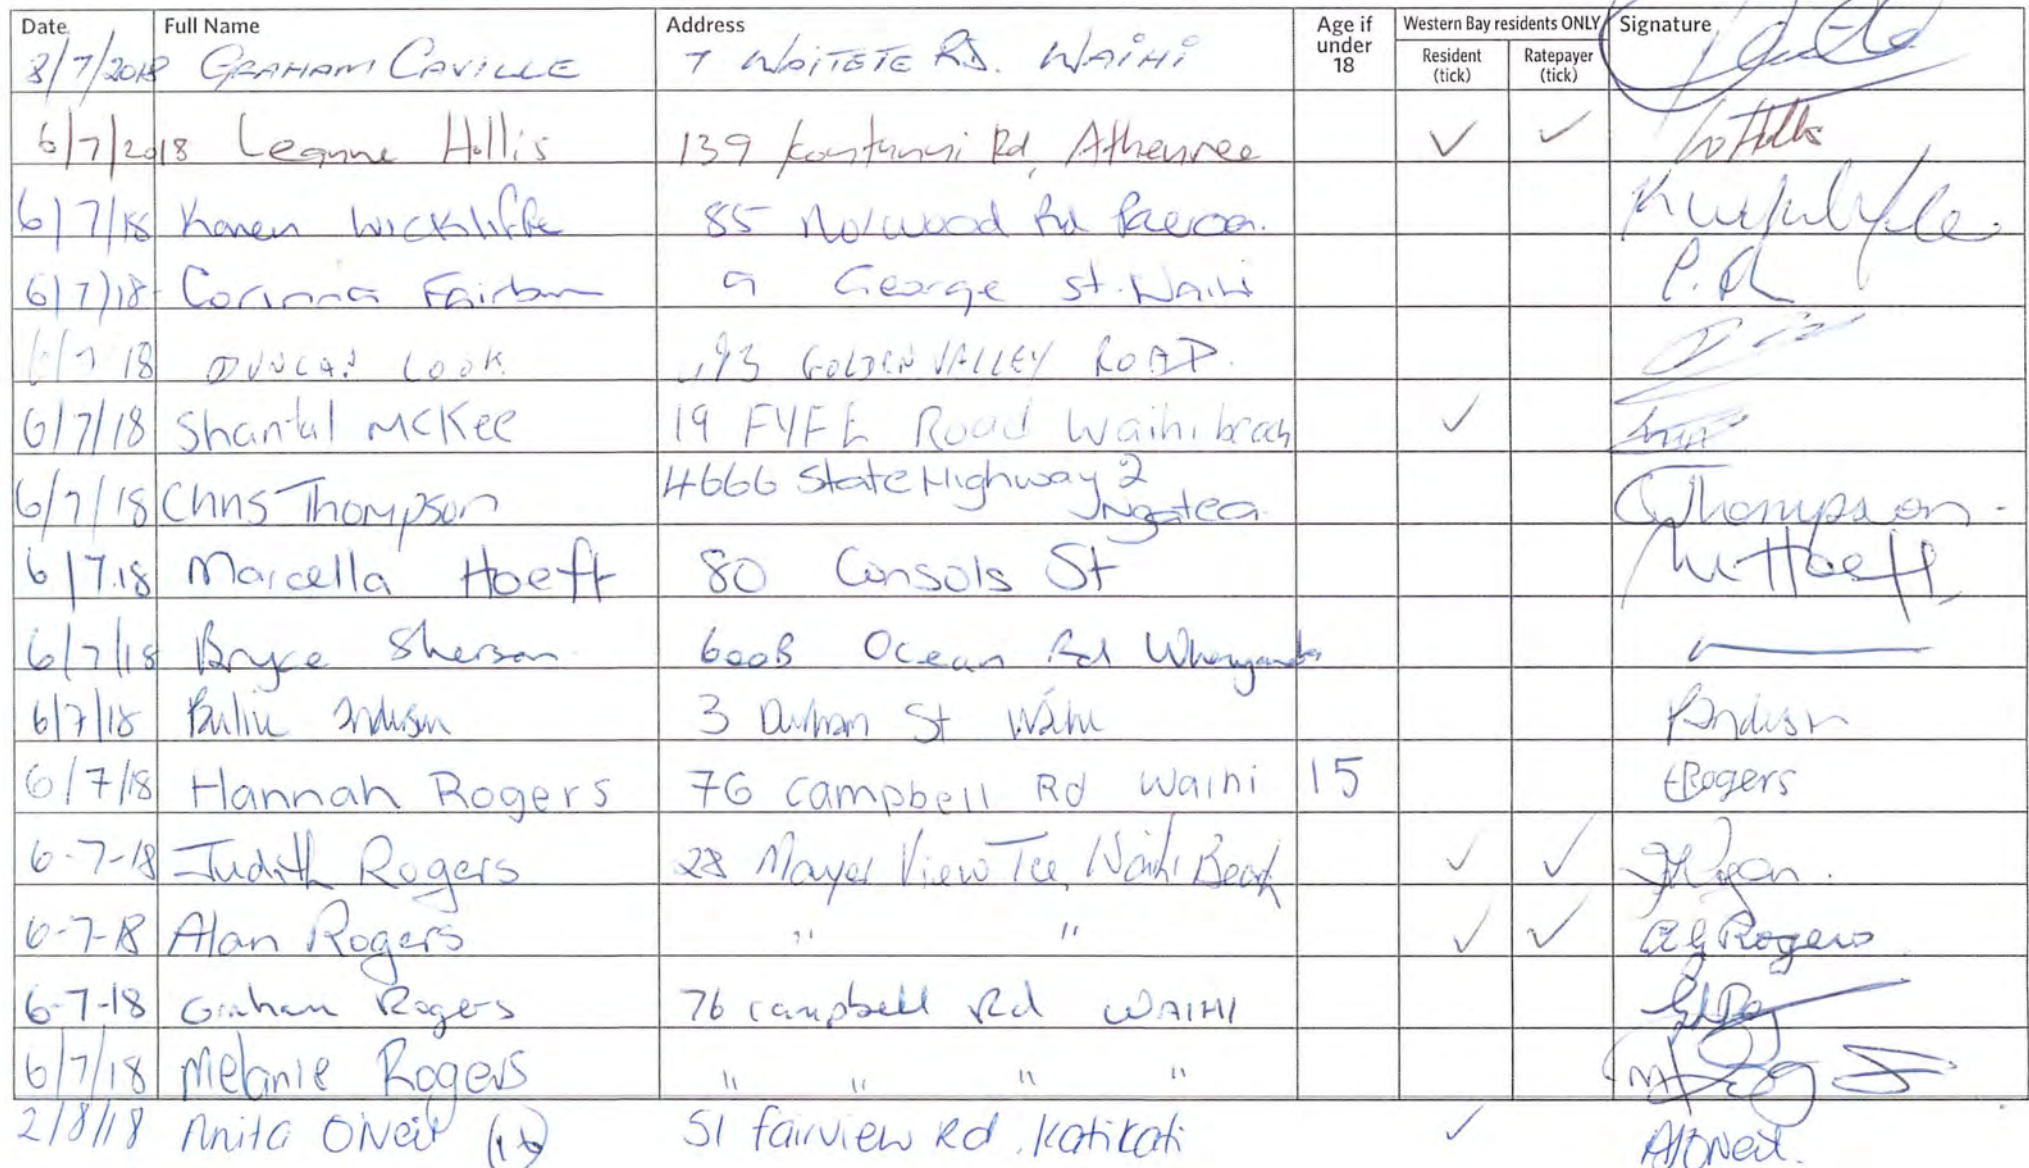 Date Full Name Address Age if under 18 Western Bay residents ONLY Resident (tick) Ratepayer (tick) Signature
8/7/2018 GRAHAM CAVILLE 7 WAITETE RD. WAIHI
6/7/2018 Leanne Hollis 139 Rd, Athenree ✓ ✓
6/7/18 Karen Wickliffe 85 Norwood Rd Paeroa.
6/7/18 Corinna Fairburn 9 George St. Waihi
6/7 18 DUNCAN COOK GOLDEN VALLEY ROAD.
6/7/18 Shantal McKee 19 FYFE Road Waihi beach ✓
6/7/18 Chris Thompson 4666 State Highway 2 Ngatea. CThompson.
6/7.18 Marcella Hoeft 80 Consols St M Hoeft
6/7/18 Bryce Sherson 600B Ocean Rd Whangamata
6/7/18 3 St Waihi
6/7/18 Hannah Rogers 76 Campbell Rd Waihi 15 HRogers
6-7-18 Judith Rogers 28 Mayor View Tce, Waihi Beach ✓ ✓
6-7-18 Alan Rogers " " ✓ ✓ AG Rogers.
6-7-18 Graham Rogers 76 Campbell Rd WAIHI
6/7/18 Melanie Rogers " " " "
2/8/18 Anita ONeil 51 fairview Rd, Katikati ✓ AONeil.